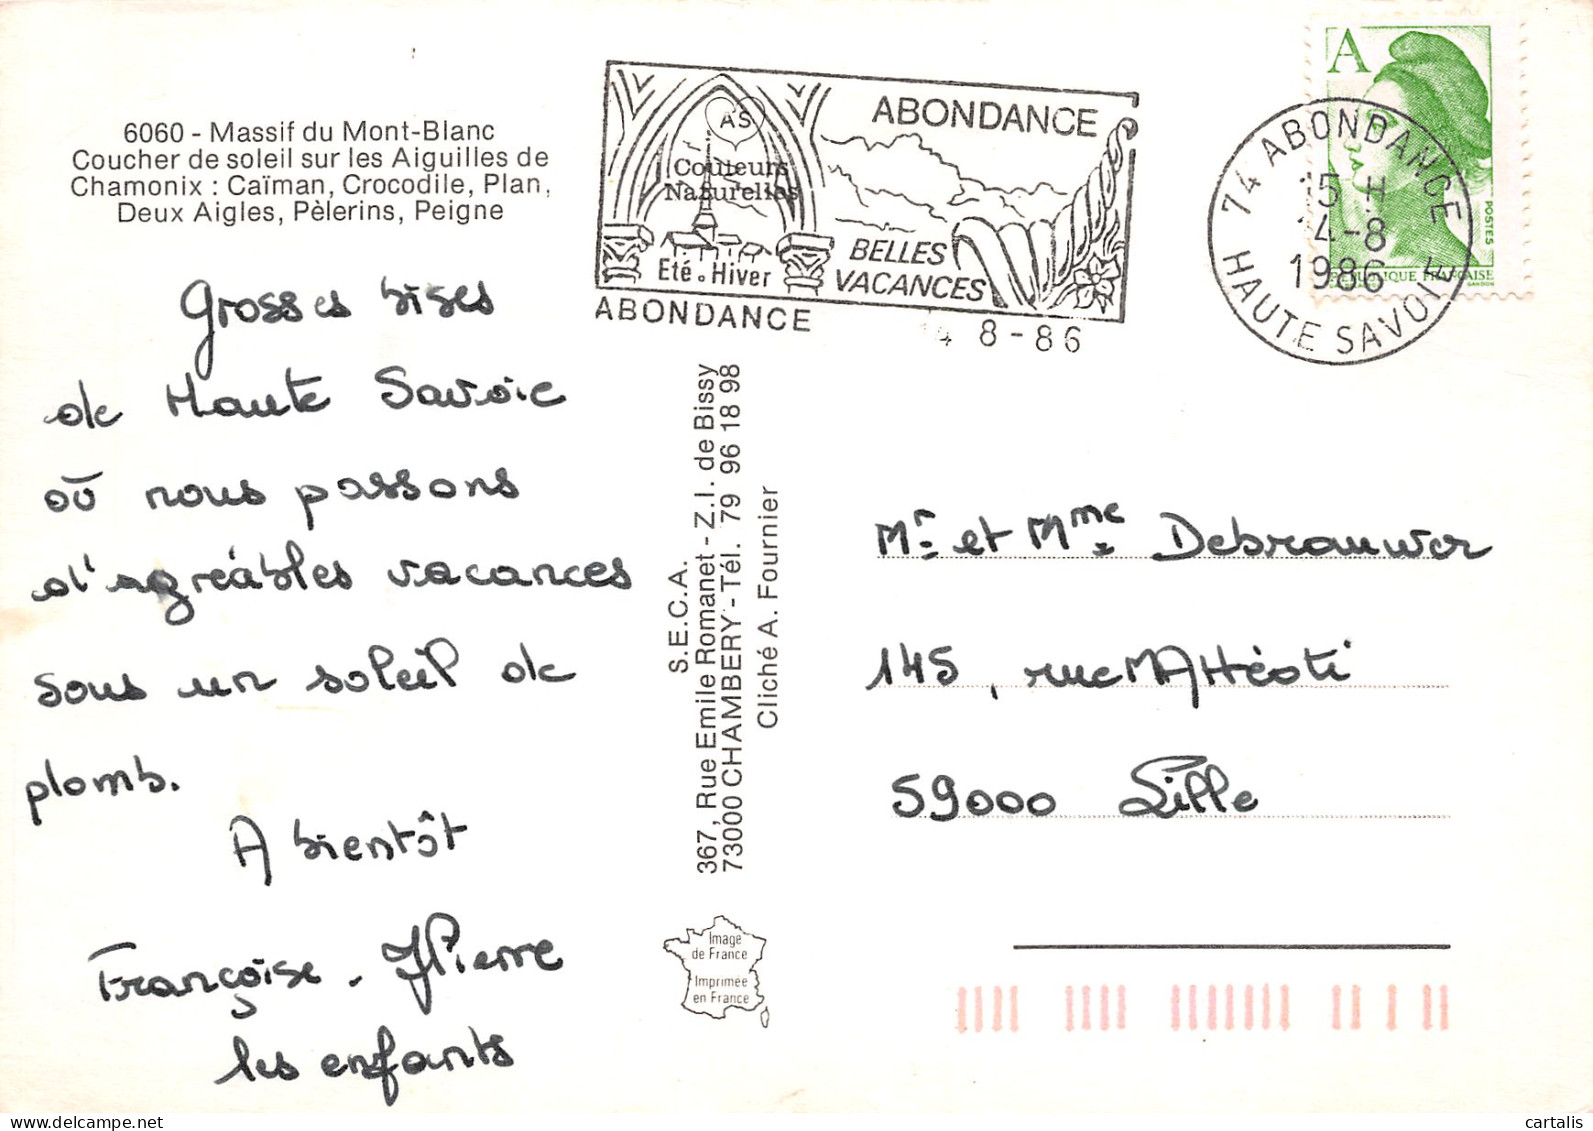 6060 - Massif du Mont-Blanc
Coucher de soleil sur les Aiguilles de
Chamonix : Caïman, Crocodile, Plan,
Deux Aigles, Pèlerins, Peigne
Grosses bises
de Haute Savoie
où nous passons
d'agréables vacances
sous un soleil de
plomb.
A bientôt
Françoise. JPierre
les enfants
AS
Couleurs
Naturelles
Eté. Hiver
ABONDANCE
BELLES
VACANCES
ABONDANCE
14 8-86
S.E.C.A.
367, Rue Emile Romanet - Z.I. de Bissy
73000 CHAMBERY - Tél. 79 96 18 98
Cliché A. Fournier
Image
de France
Imprimée
en France
A
POSTES
REPUBLIQUE FRANÇAISE
GANDON
74 ABONDANCE
15 H
14-8
1986
HAUTE SAVOIE
Mr et Mme Debrauwer
145, rue
59000 Lille
cartalis
delcampe.net